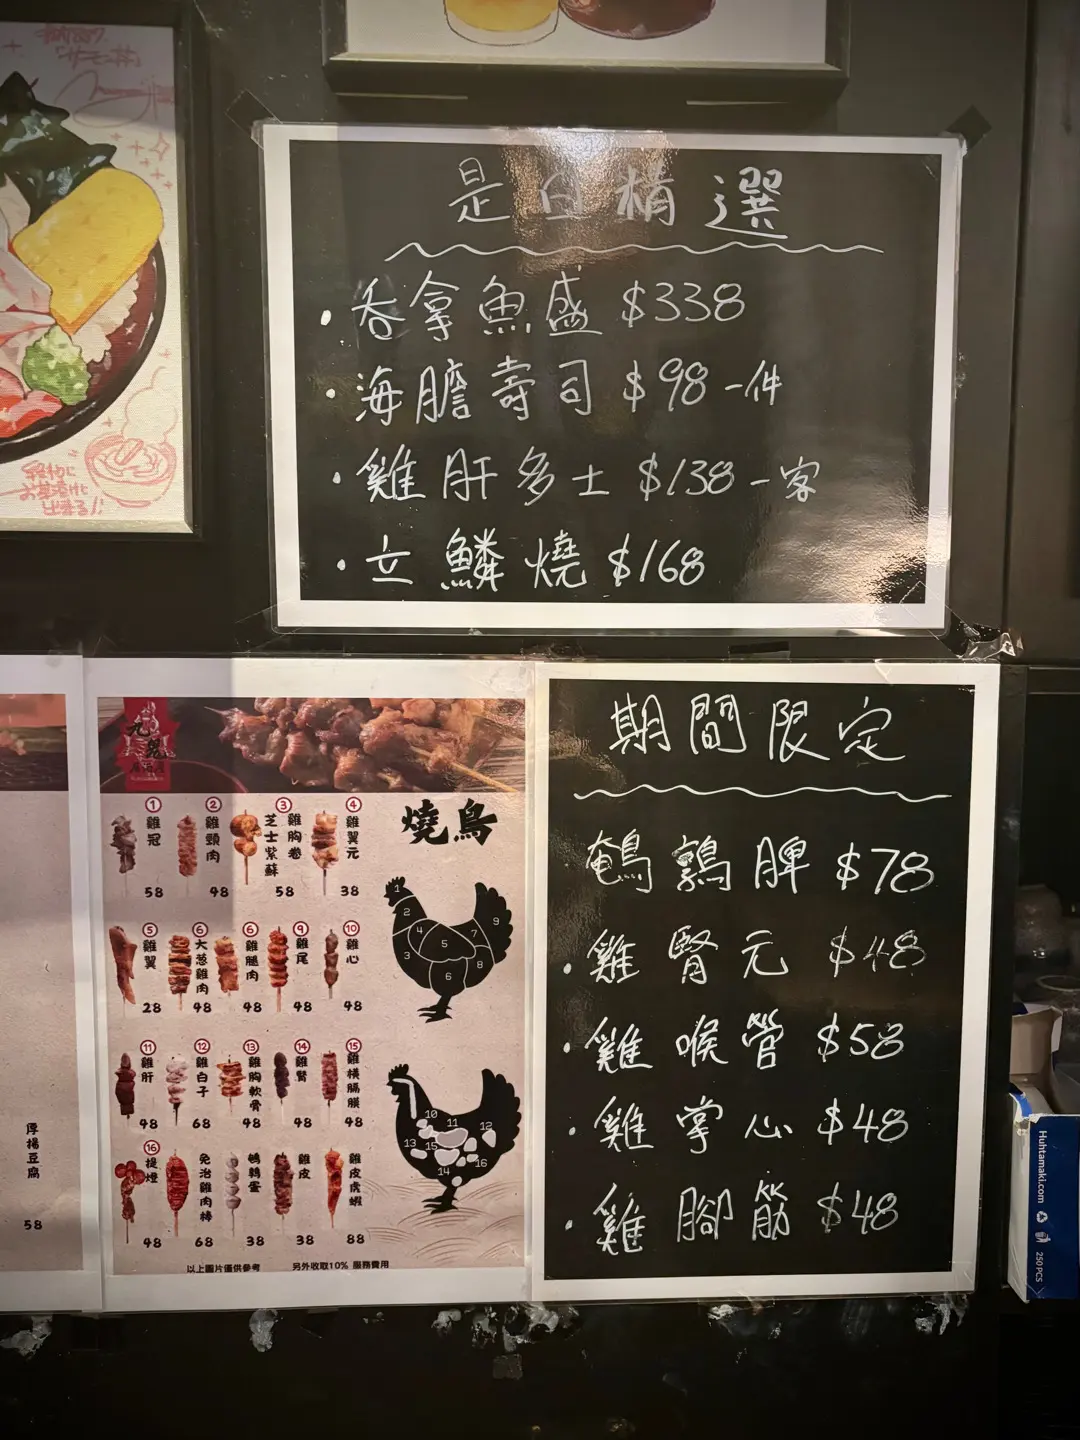 是日精選
·吞拿魚盛 $338
·海膽壽司 $98一件
·雞肝多士 $138一客
·立鱗燒 $168
期間限定
鵪鶉脾 $78
·雞腎元 $48
·雞喉管 $58
·雞掌心 $48
·雞腳筋 $48
燒鳥
① 雞冠 58
② 雞頸肉 48
③ 雞胸卷 芝士紫蘇 58
④ 雞翼元 38
⑤ 雞翼 28
⑥ 大葱雞肉 48
⑥ 雞腿肉 48
⑨ 雞尾 48
⑩ 雞心 48
⑪ 雞肝 48
⑫ 雞白子 68
⑬ 雞胸軟骨 48
⑭ 雞腎 48
⑮ 雞橫膈膜 48
⑯ 提燈 48
免治雞肉棒 68
鵪鶉蛋 38
雞皮 38
雞皮虎蝦 88
1
2
3
4
5
6
7
8
9
10
11
12
13
15
14
16
以上圖片僅供參考 另外收取10% 服務費用
厚揚豆腐
58
Huhtamaki.com
250 PCS